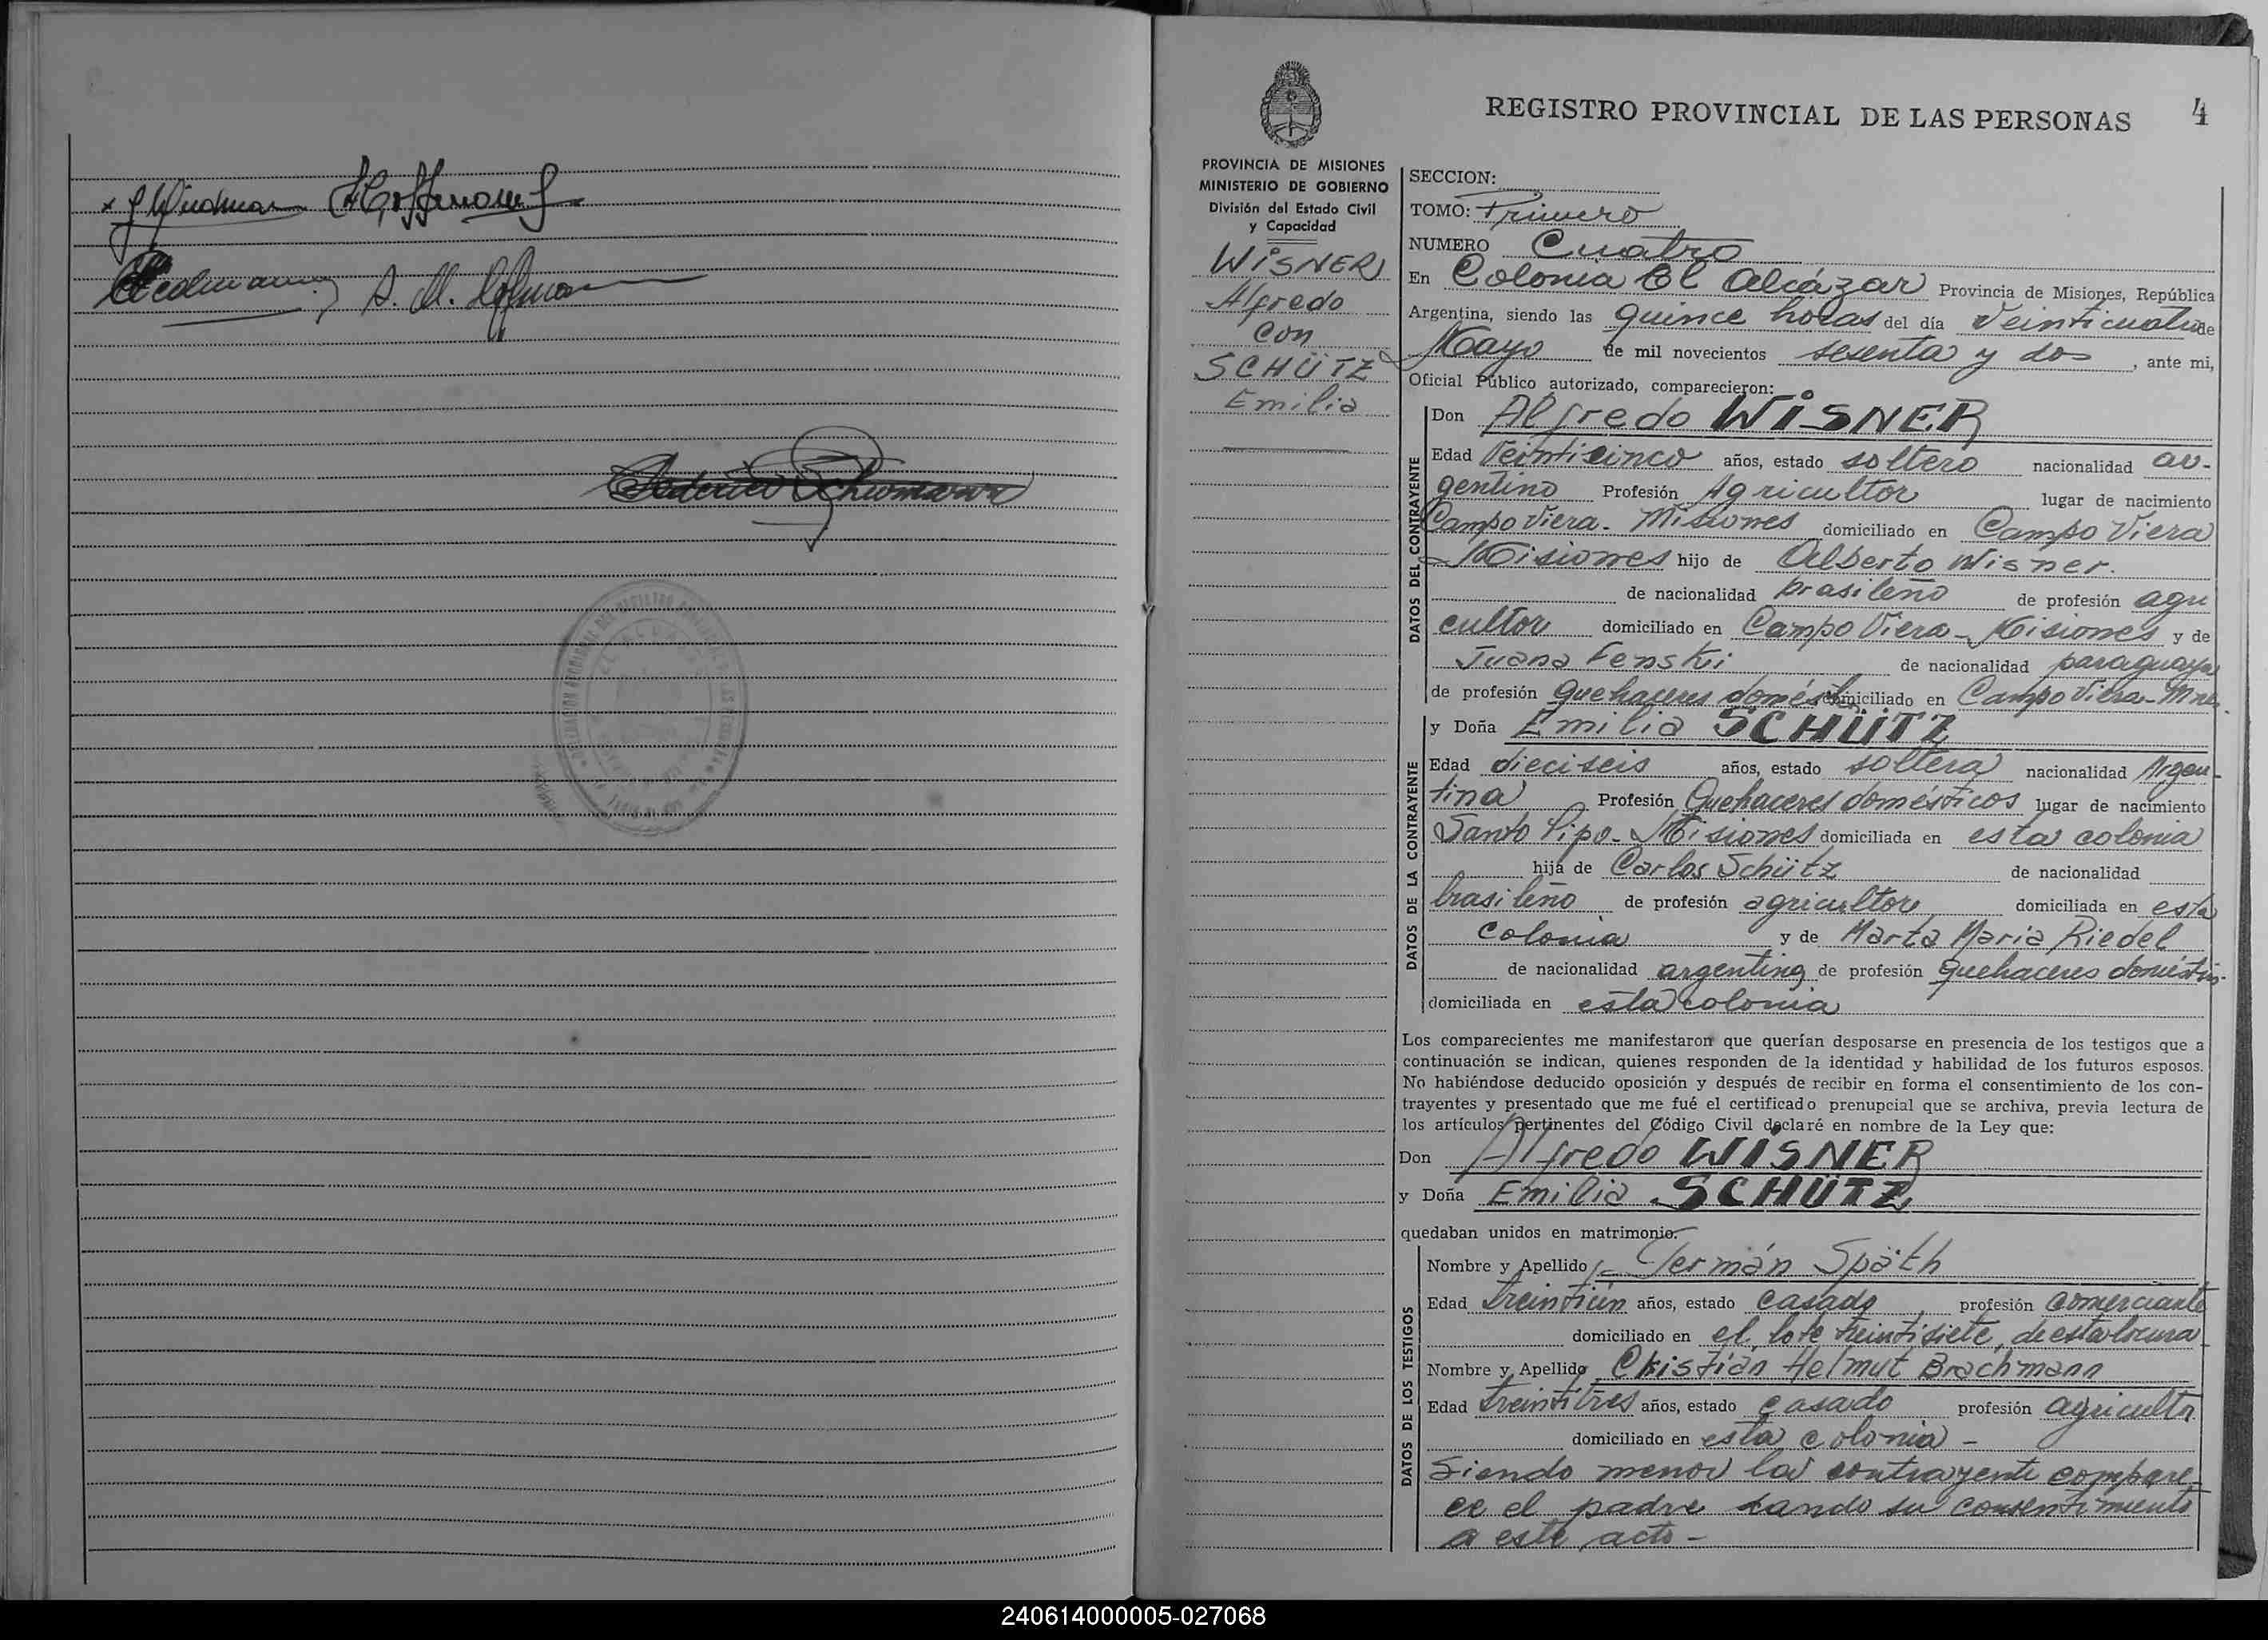 REGISTRO PROVINCIAL DE LAS PERSONAS 4
PROVINCIA DE MISIONES
MINISTERIO DE GOBIERNO
División del Estado Civil
y Capacidad
WISNER
Alfredo
con
SCHÜTZ
Emilia
SECCION:
TOMO: Primero
NUMERO Cuatro
En Colonia El Alcázar Provincia de Misiones, República
Argentina, siendo las quince horas del día veinticuatro de
Mayo de mil novecientos sesenta y dos, ante mi,
Oficial Público autorizado, comparecieron:
DATOS DEL CONTRAYENTE
Don Alfredo WISNER
Edad Veinticinco años, estado soltero nacionalidad ar-
gentino Profesión Agricultor lugar de nacimiento
Campo Viera - Misiones domiciliado en Campo Viera
- Misiones hijo de Alberto Wisner.
de nacionalidad brasileño de profesión agri
cultor domiciliado en Campo Viera - Misiones y de
Juana Fenski de nacionalidad paraguaya
de profesión quehaceres domést. domiciliado en Campo Viera - Mnes.
DATOS DE LA CONTRAYENTE
y Doña Emilia SCHÜTZ
Edad dieciseis años, estado soltera nacionalidad Argen-
tina Profesión Quehaceres domésticos lugar de nacimiento
Santo Pipo - Misiones domiciliada en esta colonia
hija de Carlos Schütz de nacionalidad
brasileño de profesión agricultor domiciliada en esta
colonia y de Marta Maria Riedel
de nacionalidad argentina de profesión quehaceres doméstic.
domiciliada en esta colonia
Los comparecientes me manifestaron que querían desposarse en presencia de los testigos que a
continuación se indican, quienes responden de la identidad y habilidad de los futuros esposos.
No habiéndose deducido oposición y después de recibir en forma el consentimiento de los con-
trayentes y presentado que me fué el certificado prenupcial que se archiva, previa lectura de
los artículos pertinentes del Código Civil declaré en nombre de la Ley que:
Don Alfredo WISNER
y Doña Emilia SCHÜTZ
quedaban unidos en matrimonio.
DATOS DE LOS TESTIGOS
Nombre y Apellido Germán Späth
Edad treintiún años, estado casado, profesión comerciante
domiciliado en el lote treintisiete, de esta
Nombre y Apellido Christian Helmut Brachmann
Edad treintitres años, estado casado profesión agricultr
domiciliado en esta colonia -
Siendo menor la contrayente compare-
ce el padre dando su consentimiento
a este acto -
240614000005-027068